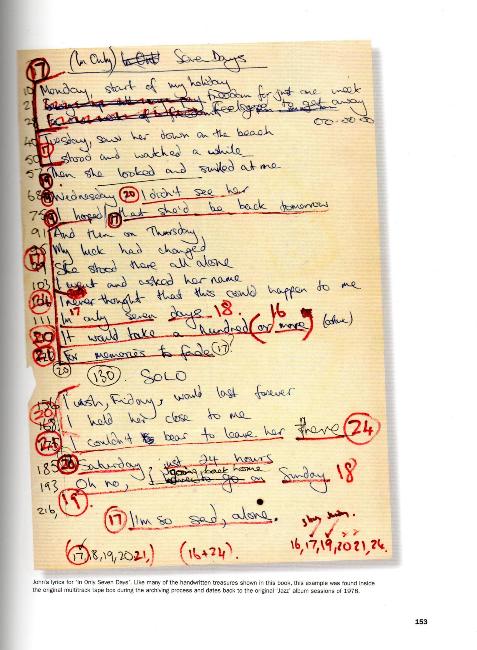 (In Only) Seven Days
17
10 Monday, start of my holiday
21 Freedom for just one week
28 Feels good to get away
OO-OO-OO
40 Tuesday, saw her down on the beach
17
50 I stood and watched a while
57 Then she looked and smiled at me
68 Wednesday 20 I didn't see her
75 I hoped 17 that she'd be back tomorrow
91 And then on Thursday
My luck had changed
17
She stood there all alone
103 I went and asked her name
I never thought that this could happen to me
111 In only seven days 18. 16
17
20 It would take a hundred (or more)
For memories to fade 17
20
130. SOLO
I wish, Friday, would last forever
20 I held her close to me
I couldn't bear to leave her there 24
185 20 Saturday just 24 hours
193 Oh no, going back home on Sunday 18
19
216,
17 I'm so sad, alone.
(17) 18, 19, 20 21,) (16+24). 16, 17, 19, 20 21, 24.
John's lyrics for 'In Only Seven Days'. Like many of the handwritten treasures shown in this book, this example was found inside
the original multitrack tape box during the archiving process and dates back to the original 'Jazz' album sessions of 1978.
153